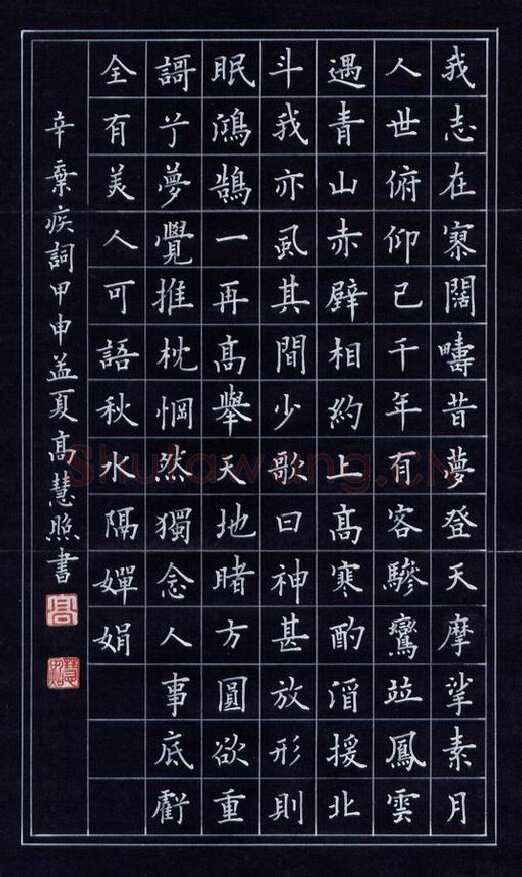 我志在寥闊疇昔夢登天摩挲素月
人世俯仰已千年有客驂鸞竝鳳雲
遇青山赤壁相約上高寒酌酒援北
斗我亦虱其間少歌曰神甚放形則
眠鴻鵠一再高舉天地睹方圓欲重
謌兮夢覺推枕惘然獨念人事底虧
全有美人可語秋水隔嬋娟
辛棄疾詞甲申孟夏高慧照書
高
慧照
Shufawang.CN